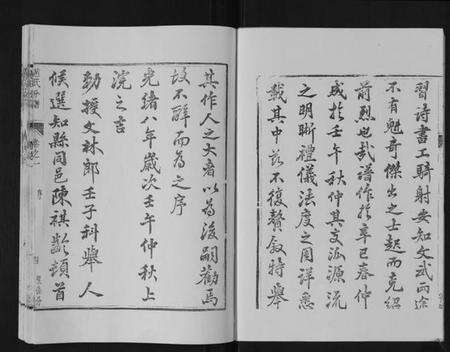 習詩書工騎射安知文武两途
不有魁奇傑出之士起而克紹
前烈也哉譜作於辛巳春仲
成於壬午秋仲其支泒源流
之明晰禮儀法度之周詳悉
載其中玆不復贅叙特舉
其作人之大者以為後嗣勸焉
故不辭而為之序
光緒八年歲次壬午仲秋上
浣之吉
勅授文林郎壬子科舉人
候選知縣同邑陳祺齡頓首